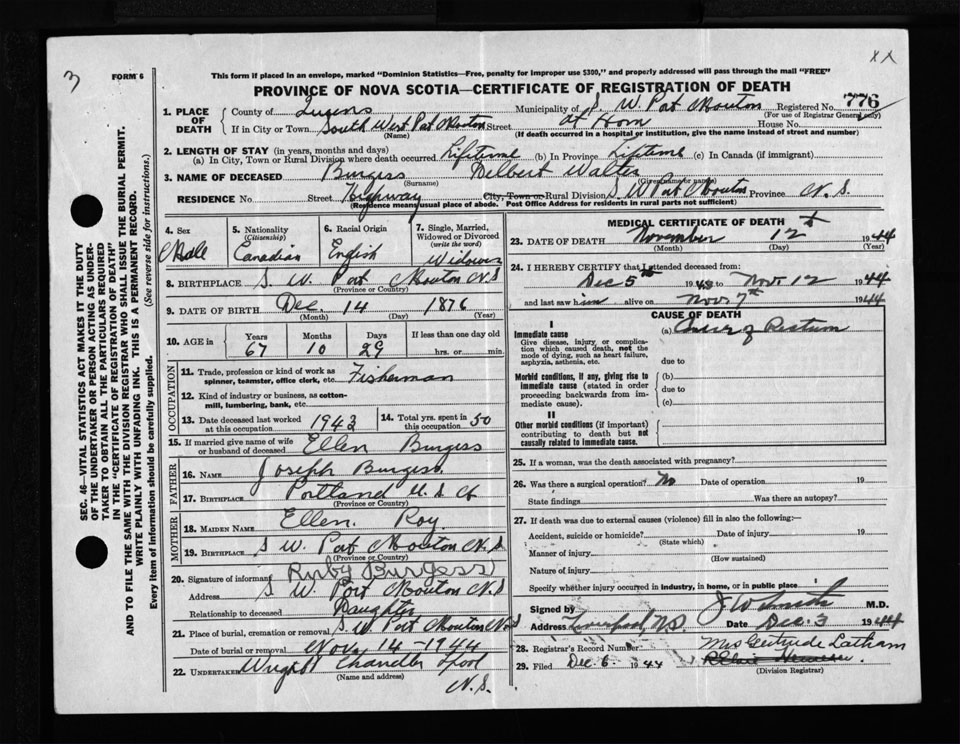 3
XX
FORM 6
This form if placed in an envelope, marked "Dominion Statistics—Free, penalty for improper use $300," and properly addressed will pass through the mail "FREE"
PROVINCE OF NOVA SCOTIA—CERTIFICATE OF REGISTRATION OF DEATH
SEC. 46—VITAL STATISTICS ACT MAKES IT THE DUTY
OF THE UNDERTAKER OR PERSON ACTING AS UNDER-
TAKER TO OBTAIN ALL THE PARTICULARS REQUIRED
IN THE "CERTIFICATE OF REGISTRATION OF DEATH"
AND TO FILE THE SAME WITH THE DIVISION REGISTRAR WHO SHALL ISSUE THE BURIAL PERMIT.
WRITE PLAINLY WITH UNFADING INK. THIS IS A PERMANENT RECORD.
Every item of information should be carefully supplied. (See reverse side for instructions.)
1. PLACE OF DEATH County of Queens Municipality of S. W. Port Mouton Registered No. 776
(For use of Registrar General only)
If in City or Town South West Port Mouton Street at Hom House No.
(Name) (If death occurred in a hospital or institution, give the name instead of street and number)
2. LENGTH OF STAY (in years, months and days)
(a) In City, Town or Rural Division where death occurred Lifetime (b) In Province Lifetime (c) In Canada (if immigrant)
3. NAME OF DECEASED Burgess Delbert Walter
(Surname) (Given or christian name)
RESIDENCE No. Street Highway City, Town or Rural Division S W Port Mouton Province N. S.
(Residence means usual place of abode. Post Office Address for residents in rural parts not sufficient)
4. Sex 5. Nationality (Citizenship) 6. Racial Origin 7. Single, Married, Widowed or Divorced (write the word)
Male Canadian English Widower
8. BIRTHPLACE S. W. Port Mouton N.S
(Province or Country)
9. DATE OF BIRTH Dec. 14 1876
(Month) (Day) (Year)
10. AGE in Years Months Days If less than one day old
67 10 29 hrs. or min.
OCCUPATION
11. Trade, profession or kind of work as spinner, teamster, office clerk, etc. Fisherman
12. Kind of industry or business, as cotton-mill, lumbering, bank, etc.
13. Date deceased last worked at this occupation 1943 14. Total yrs. spent in this occupation 50
15. If married give name of wife or husband of deceased Ellen Burgess
FATHER
16. NAME Joseph Burgess
17. BIRTHPLACE Portland U. S. A
(Province or Country)
MOTHER
18. MAIDEN NAME Ellen Roy
19. BIRTHPLACE S W. Port Mouton N.S
(Province or Country)
20. Signature of informant Ruby Burgess
Address S W. Port Mouton N.S
Relationship to deceased Daughter
21. Place of burial, cremation or removal S. W Port Mouton N S
Date of burial or removal Nov. 14 - 1944
22. UNDERTAKER Wright Chandler
(Name and address)
N.S.
MEDICAL CERTIFICATE OF DEATH X
23. DATE OF DEATH November 12 1944
(Month) (Day) (Year)
24. I HEREBY CERTIFY that I attended deceased from:
Dec 5th 1943 to Nov. 12 1944
and last saw him alive on Nov. 7th 1944
CAUSE OF DEATH
I
Immediate cause (a) Cancer of Rectum
Give disease, injury, or complica-
tion which caused death, not the
mode of dying, such as heart failure,
asphyxia, asthenia, etc. due to
Morbid conditions, if any, giving rise to (b)
immediate cause (stated in order due to
proceeding backwards from im-
mediate cause). (c)
II
Other morbid conditions (if important)
contributing to death but not
causally related to immediate cause.
25. If a woman, was the death associated with pregnancy?
26. Was there a surgical operation? No Date of operation 19
State findings Was there an autopsy?
27. If death was due to external causes (violence) fill in also the following:—
Accident, suicide or homicide? Date of injury 19
(State which)
Manner of injury
(How sustained)
Nature of injury
Specify whether injury occurred in industry, in home, or in public place
Signed by J W Smith M.D.
Address Liverpool NS Date Dec. 3 1944
28. Registrar's Record Number Mrs Gertrude Latham
29. Filed Dec 6 1944
(Division Registrar)